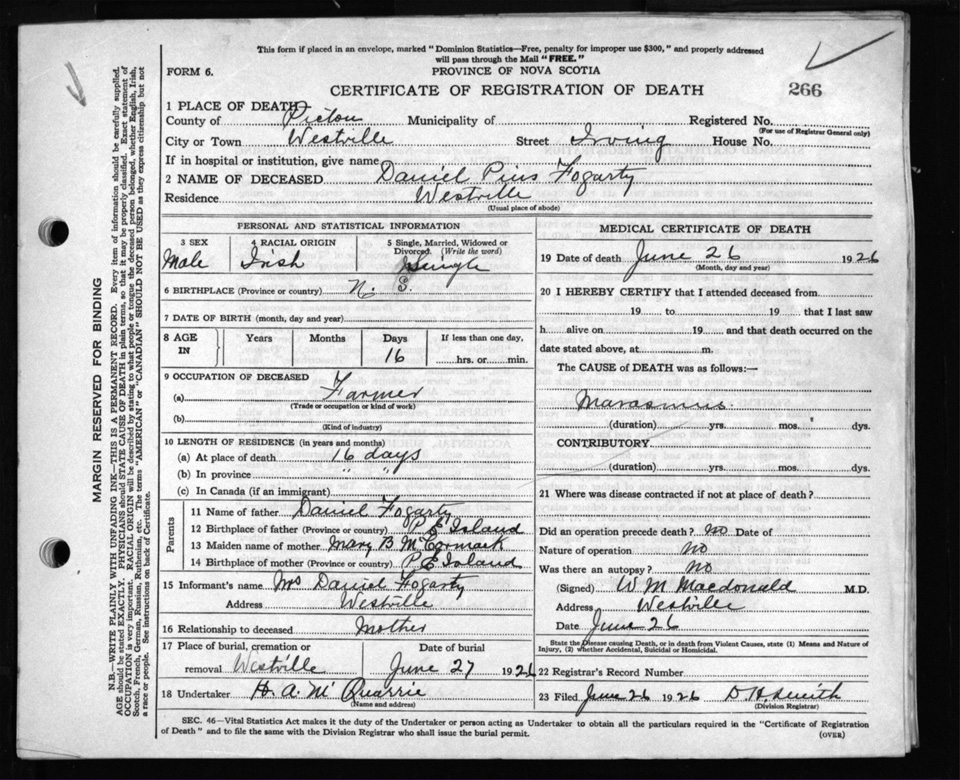 This form if placed in an envelope, marked "Dominion Statistics—Free, penalty for improper use $300," and properly addressed
will pass through the Mail "FREE."
FORM 6.
PROVINCE OF NOVA SCOTIA
CERTIFICATE OF REGISTRATION OF DEATH
266
1 PLACE OF DEATH
County of Pictou Municipality of Registered No.
(For use of Registrar General only)
City or Town Westville Street Irving House No.
If in hospital or institution, give name
2 NAME OF DECEASED Daniel Pius Fogarty
Residence Westville
(Usual place of abode)
PERSONAL AND STATISTICAL INFORMATION
3 SEX 4 RACIAL ORIGIN 5 Single, Married, Widowed or
Divorced. (Write the word)
Male Irish Single
6 BIRTHPLACE (Province or country) N. S.
7 DATE OF BIRTH (month, day and year)
8 AGE IN Years Months Days If less than one day,
16 hrs. or min.
9 OCCUPATION OF DECEASED
(a) Farmer
(Trade or occupation or kind of work)
(b)
(Kind of industry)
10 LENGTH OF RESIDENCE (in years and months)
(a) At place of death 16 days
(b) In province " "
(c) In Canada (if an immigrant)
Parents
11 Name of father Daniel Fogarty
12 Birthplace of father (Province or country) P E Island
13 Maiden name of mother Mary B McCormack
14 Birthplace of mother (Province or country) P E Island
15 Informant's name Mrs Daniel Fogarty
Address Westville
16 Relationship to deceased Mother
17 Place of burial, cremation or Date of burial
removal Westville June 27 1926
18 Undertaker H. A. McQuarrie
(Name and address)
MEDICAL CERTIFICATE OF DEATH
19 Date of death June 26 1926
(Month, day and year)
20 I HEREBY CERTIFY that I attended deceased from
19 to 19 that I last saw
h alive on 19 and that death occurred on the
date stated above, at m.
The CAUSE of DEATH was as follows:—
Marasmus
(duration) yrs. mos. dys.
CONTRIBUTORY
(duration) yrs. mos. dys.
21 Where was disease contracted if not at place of death?
Did an operation precede death? No Date of
Nature of operation No
Was there an autopsy? No
(Signed) W M Macdonald M.D.
Address Westville
Date June 26
State the Disease causing Death, or in death from Violent Causes, state (1) Means and Nature of
Injury, (2) whether Accidental, Suicidal or Homicidal.
22 Registrar's Record Number
23 Filed June 26 1926 D H Smith
(Division Registrar)
SEC. 46—Vital Statistics Act makes it the duty of the Undertaker or person acting as Undertaker to obtain all the particulars required in the "Certificate of Registration
of Death" and to file the same with the Division Registrar who shall issue the burial permit.
(OVER)
MARGIN RESERVED FOR BINDING
N.B.—WRITE PLAINLY WITH UNFADING INK—THIS IS A PERMANENT RECORD. Every item of information should be carefully supplied.
AGE should be stated EXACTLY. PHYSICIANS should STATE CAUSE OF DEATH in plain terms, so that it may be properly classified. Exact statement of
OCCUPATION is very important. RACIAL ORIGIN will be described by stating to what people or tongue the deceased person belonged, whether English, Irish,
Scotch, French, German, Russian, Ruthenian, etc. The terms "AMERICAN" or "CANADIAN" SHOULD NOT BE USED as they express citizenship but not
a race or people. See instructions on back of Certificate.